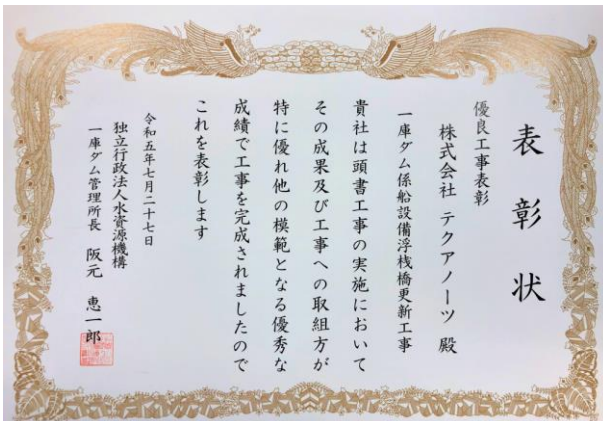 表彰状
優良工事表彰
株式会社 テクアノーツ 殿
一庫ダム係船設備浮桟橋更新工事
貴社は頭書工事の実施において
その成果及び工事への取組方が
特に優れ他の模範となる優秀な
成績で工事を完成されましたので
これを表彰します
令和五年七月二十七日
独立行政法人水資源機構
一庫ダム管理所長 阪元 恵一郎